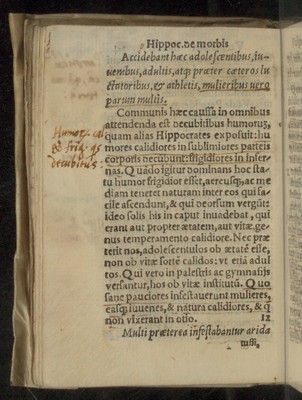 Hippoc. de morbis
Accidebant hæc adolescentibus, iu-
uenibus, adultis, atq; præter cæteros lu
ctatoribus, & athletis, mulieribus uero
parum multis.
Communis hæc caussa in omnibus
attendenda est decubitibus humorũ,
quam alias Hippocrates exposuit: hu
mores calidiores in sublimiores parteis
corporis decubunt: frigidiores in infer-
nas. Quãdo igitur dominans hoc sta-
tu humor frigidior esset, aer eusq; ac me
diam teneret naturam inter eos qui fa
cile ascendunt, & qui deorsum vergũt:
ideo solis his in caput inuadebat, qui
erant aut propter ætatem, aut vitæ ge-
nus temperamento calidiore. Nec præ
terit nos, adolescentulos ob ætatẽ esse,
non ob vitæ sortẽ calidos: vt etiã adul
tos. Qui vero in palestris ac gymnasiis
versantur, hos ob vitæ institutũ. Quo
sane pauciores infestauerunt mulieres,
easq; iuuenes, & natura calidiores, & q̃
non vixerant in otio.
12
Multi præterea infestabantur arida
tussi,
Humor. cal
& frig. qs
decubitus: